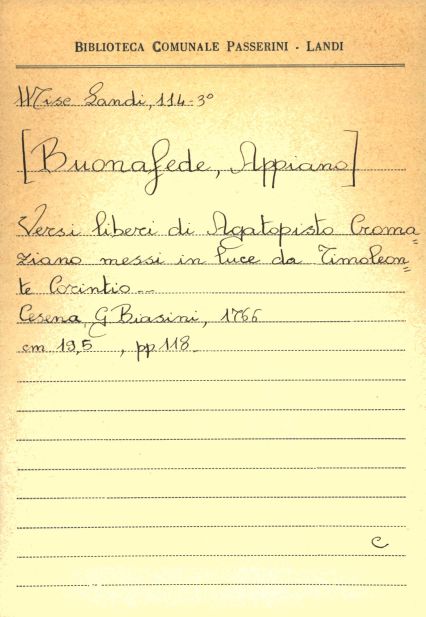 BIBLIOTECA COMUNALE PASSERINI - LANDI
Misc Landi, 114-3°
[Buonafede, Appiano]
Versi liberi di Agatopisto Croma=
ziano messi in luce da Timoleon=
te Corintio...
Cesena, G Biasini, 1766
cm 19,5 , pp 118.
C